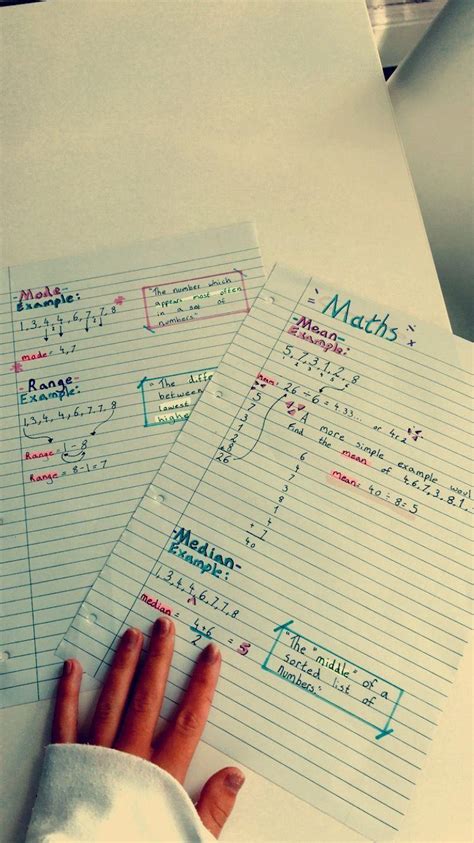 -Mode-
Example:
1,3,4,4,6,7,7,8
mode = 4,7
"The number which
appears most often
in a set of
numbers."
-Range-
Example:
1,3,4,4,6,7,7,8
Range = 1 - 8
Range = 8-1 = 7
"The
between
lowest
Maths
-Mean-
Example:
5,7,3,1,2,8
mean: 26 ÷ 6 = 4.33... or
5
7
3
1
2
+8
26
A more simple example
Find the mean of 4,6,7,3,8,1,
mean = 40 ÷ 8 = 5
6
4
7
3
8
1
4
+ 7
40
-Median-
Example:
1,3,4,4,6,7,7,8
median = 4+6
2
= 5
"The "middle" of a
sorted list of
numbers."